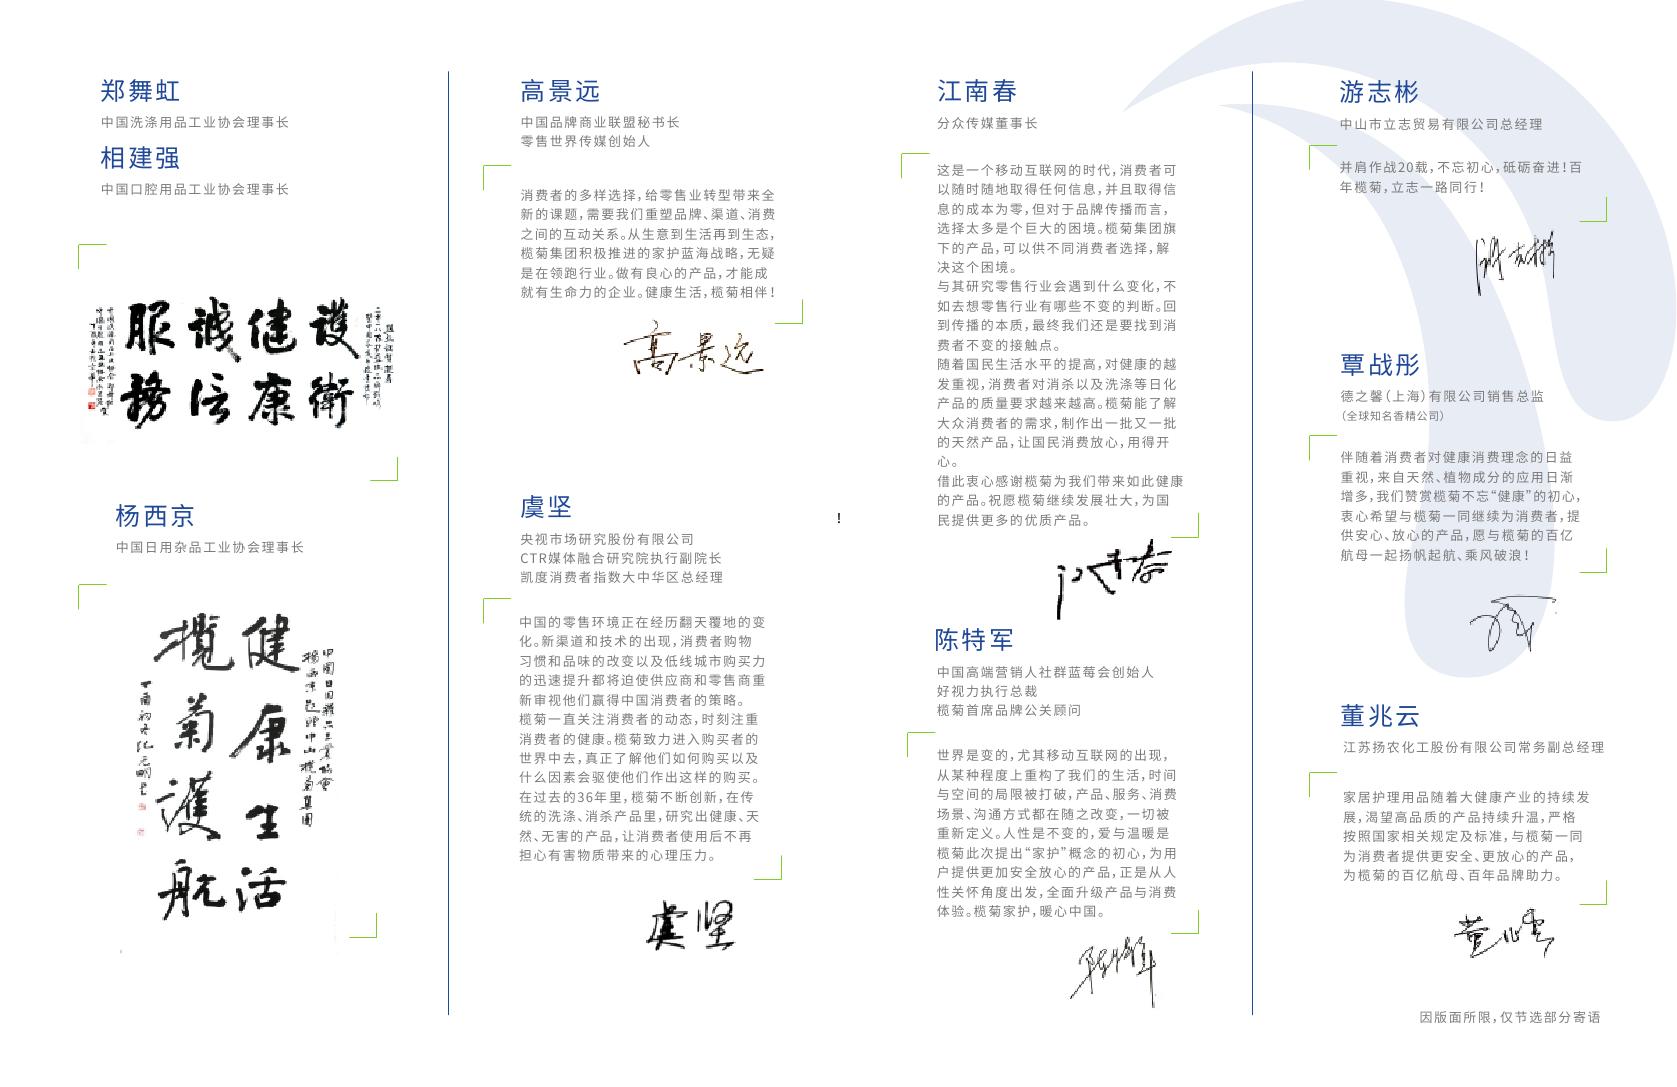 郑舞虹
中国洗涤用品工业协会理事长
相建强
中国口腔用品工业协会理事长
護衛
健康
誠信
服務
杨西京
中国日用杂品工业协会理事长
健康生活
欖菊護航
高景远
中国品牌商业联盟秘书长
零售世界传媒创始人
消费者的多样选择,给零售业转型带来全
新的课题,需要我们重塑品牌、渠道、消费
之间的互动关系。从生意到生活再到生态,
榄菊集团积极推进的家护蓝海战略,无疑
是在领跑行业。做有良心的产品,才能成
就有生命力的企业。健康生活,榄菊相伴!
高景远
虞坚
央视市场研究股份有限公司
CTR媒体融合研究院执行副院长
凯度消费者指数大中华区总经理
中国的零售环境正在经历翻天覆地的变
化。新渠道和技术的出现,消费者购物
习惯和品味的改变以及低线城市购买力
的迅速提升都将迫使供应商和零售商重
新审视他们赢得中国消费者的策略。
榄菊一直关注消费者的动态,时刻注重
消费者的健康。榄菊致力进入购买者的
世界中去,真正了解他们如何购买以及
什么因素会驱使他们作出这样的购买。
在过去的36年里,榄菊不断创新,在传
统的洗涤、消杀产品里,研究出健康、天
然、无害的产品,让消费者使用后不再
担心有害物质带来的心理压力。
虞坚
!
江南春
分众传媒董事长
这是一个移动互联网的时代,消费者可
以随时随地取得任何信息,并且取得信
息的成本为零,但对于品牌传播而言,
选择太多是个巨大的困境。榄菊集团旗
下的产品,可以供不同消费者选择,解
决这个困境。
与其研究零售行业会遇到什么变化,不
如去想零售行业有哪些不变的判断。回
到传播的本质,最终我们还是要找到消
费者不变的接触点。
随着国民生活水平的提高,对健康的越
发重视,消费者对消杀以及洗涤等日化
产品的质量要求越来越高。榄菊能了解
大众消费者的需求,制作出一批又一批
的天然产品,让国民消费放心,用得开
心。
借此衷心感谢榄菊为我们带来如此健康
的产品。祝愿榄菊继续发展壮大,为国
民提供更多的优质产品。
江南春
陈特军
中国高端营销人社群蓝莓会创始人
好视力执行总裁
榄菊首席品牌公关顾问
世界是变的,尤其移动互联网的出现,
从某种程度上重构了我们的生活,时间
与空间的局限被打破,产品、服务、消费
场景、沟通方式都在随之改变,一切被
重新定义。人性是不变的,爱与温暖是
榄菊此次提出“家护”概念的初心,为用
户提供更加安全放心的产品,正是从人
性关怀角度出发,全面升级产品与消费
体验。榄菊家护,暖心中国。
陈特军
游志彬
中山市立志贸易有限公司总经理
并肩作战20载,不忘初心,砥砺奋进!百
年榄菊,立志一路同行!
游志彬
覃战彤
德之馨(上海)有限公司销售总监
(全球知名香精公司)
伴随着消费者对健康消费理念的日益
重视,来自天然、植物成分的应用日渐
增多,我们赞赏榄菊不忘“健康”的初心,
衷心希望与榄菊一同继续为消费者,提
供安心、放心的产品,愿与榄菊的百亿
航母一起扬帆起航、乘风破浪!
董兆云
江苏扬农化工股份有限公司常务副总经理
家居护理用品随着大健康产业的持续发
展,渴望高品质的产品持续升温,严格
按照国家相关规定及标准,与榄菊一同
为消费者提供更安全、更放心的产品,
为榄菊的百亿航母、百年品牌助力。
董兆云
因版面所限,仅节选部分寄语